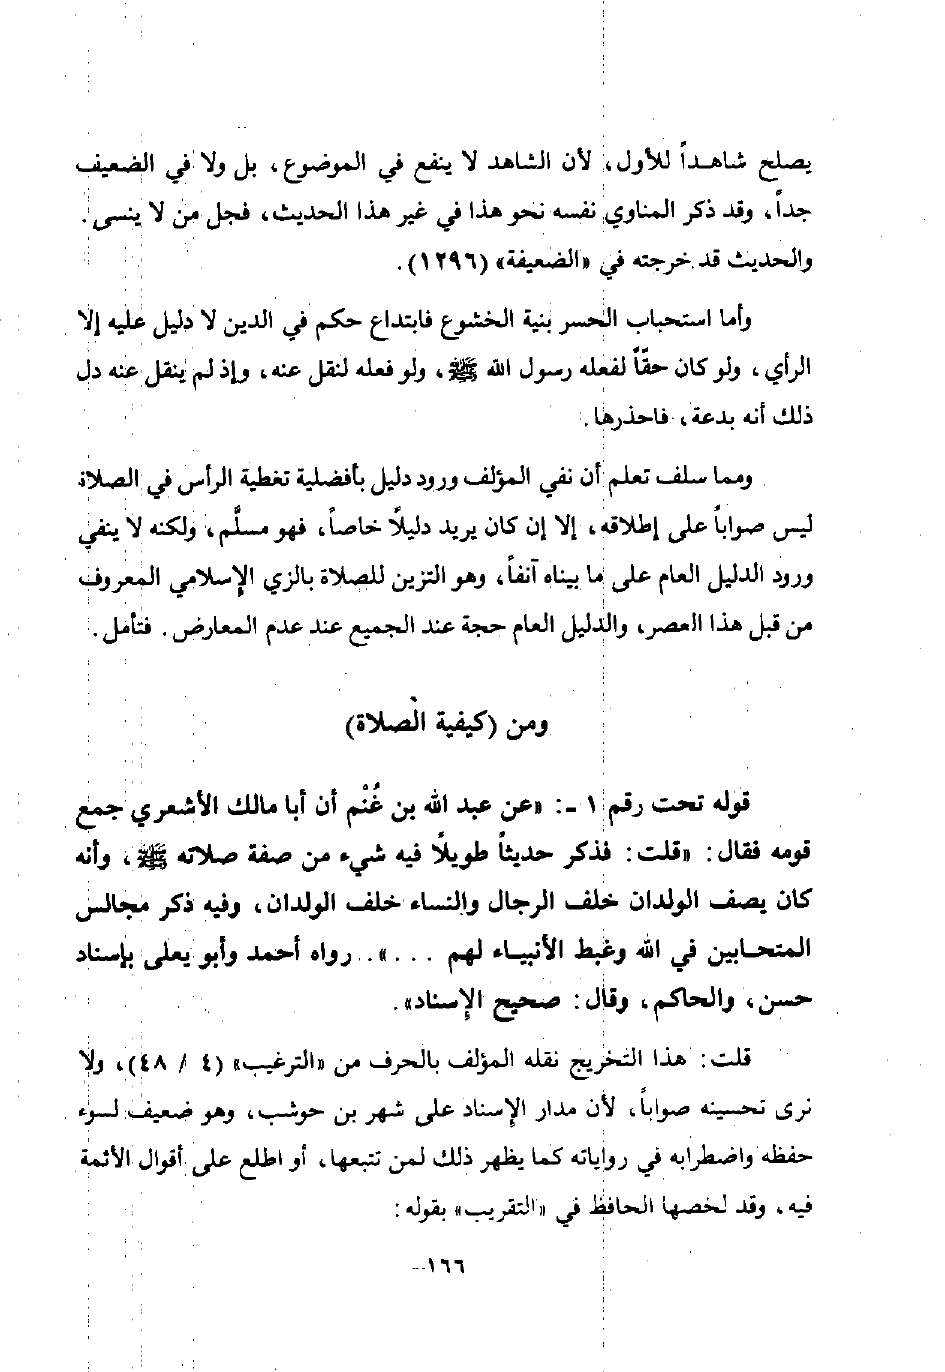 يصلح شاهداً للأول، لأن الشاهد لا ينفع في الموضوع، بل ولا في الضعيف
جداً، وقد ذكر المناوي نفسه نحو هذا في غير هذا الحديث، فجل من لا ينسى.
والحديث قد خرجته في «الضعيفة» (١٢٩٦).
وأما استحباب الحسر بنية الخشوع فابتداع حكم في الدين لا دليل عليه إلا
الرأي، ولو كان حقّاً لفعله رسول الله ﷺ، ولو فعله لنقل عنه، وإذ لم ينقل عنه دل
ذلك أنه بدعة، فاحذرها.
ومما سلف تعلم أن نفي المؤلف ورود دليل بأفضلية تغطية الرأس في الصلاة
ليس صواباً على إطلاقه، إلا إن كان يريد دليلاً خاصاً، فهو مسلَّم، ولكنه لا ينفي
ورود الدليل العام على ما بيناه آنفاً، وهو التزين للصلاة بالزي الإسلامي المعروف
من قبل هذا العصر، والدليل العام حجة عند الجميع عند عدم المعارض. فتأمل.
ومن (كيفية الصلاة)
قوله تحت رقم ١ -: «عن عبد الله بن غُنْم أن أبا مالك الأشعري جمع
قومه فقال: «قلت: فذكر حديثاً طويلاً فيه شيء من صفة صلاته ﷺ، وأنه
كان يصف الولدان خلف الرجال والنساء خلف الولدان، وفيه ذكر مجالس
المتحابين في الله وغبط الأنبياء لهم ...».. رواه أحمد وأبو يعلى بإسناد
حسن، والحاكم، وقال: صحيح الإسناد».
قلت: هذا التخريج نقله المؤلف بالحرف من «الترغيب» (٤ / ٤٨)، ولا
نرى تحسينه صواباً، لأن مدار الإسناد على شهر بن حوشب، وهو ضعيف لسوء
حفظه واضطرابه في رواياته كما يظهر ذلك لمن تتبعها، أو اطلع على أقوال الأئمة
فيه، وقد لخصها الحافظ في «التقريب» بقوله:
-١٦٦-